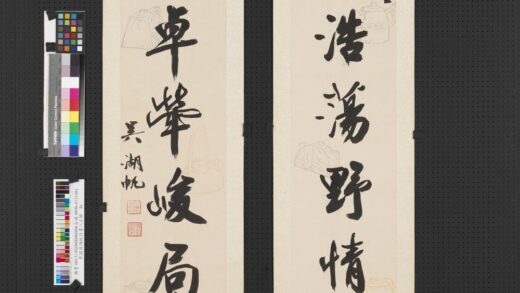 浩蕩野情
卓犖峻局
吳湖帆